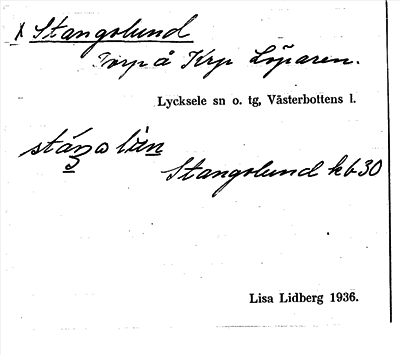 x Stangslund
Torp å Krp Löparen.
Lycksele sn o. tg, Västerbottens l.
Stangslund kb 30
Lisa Lidberg 1936.